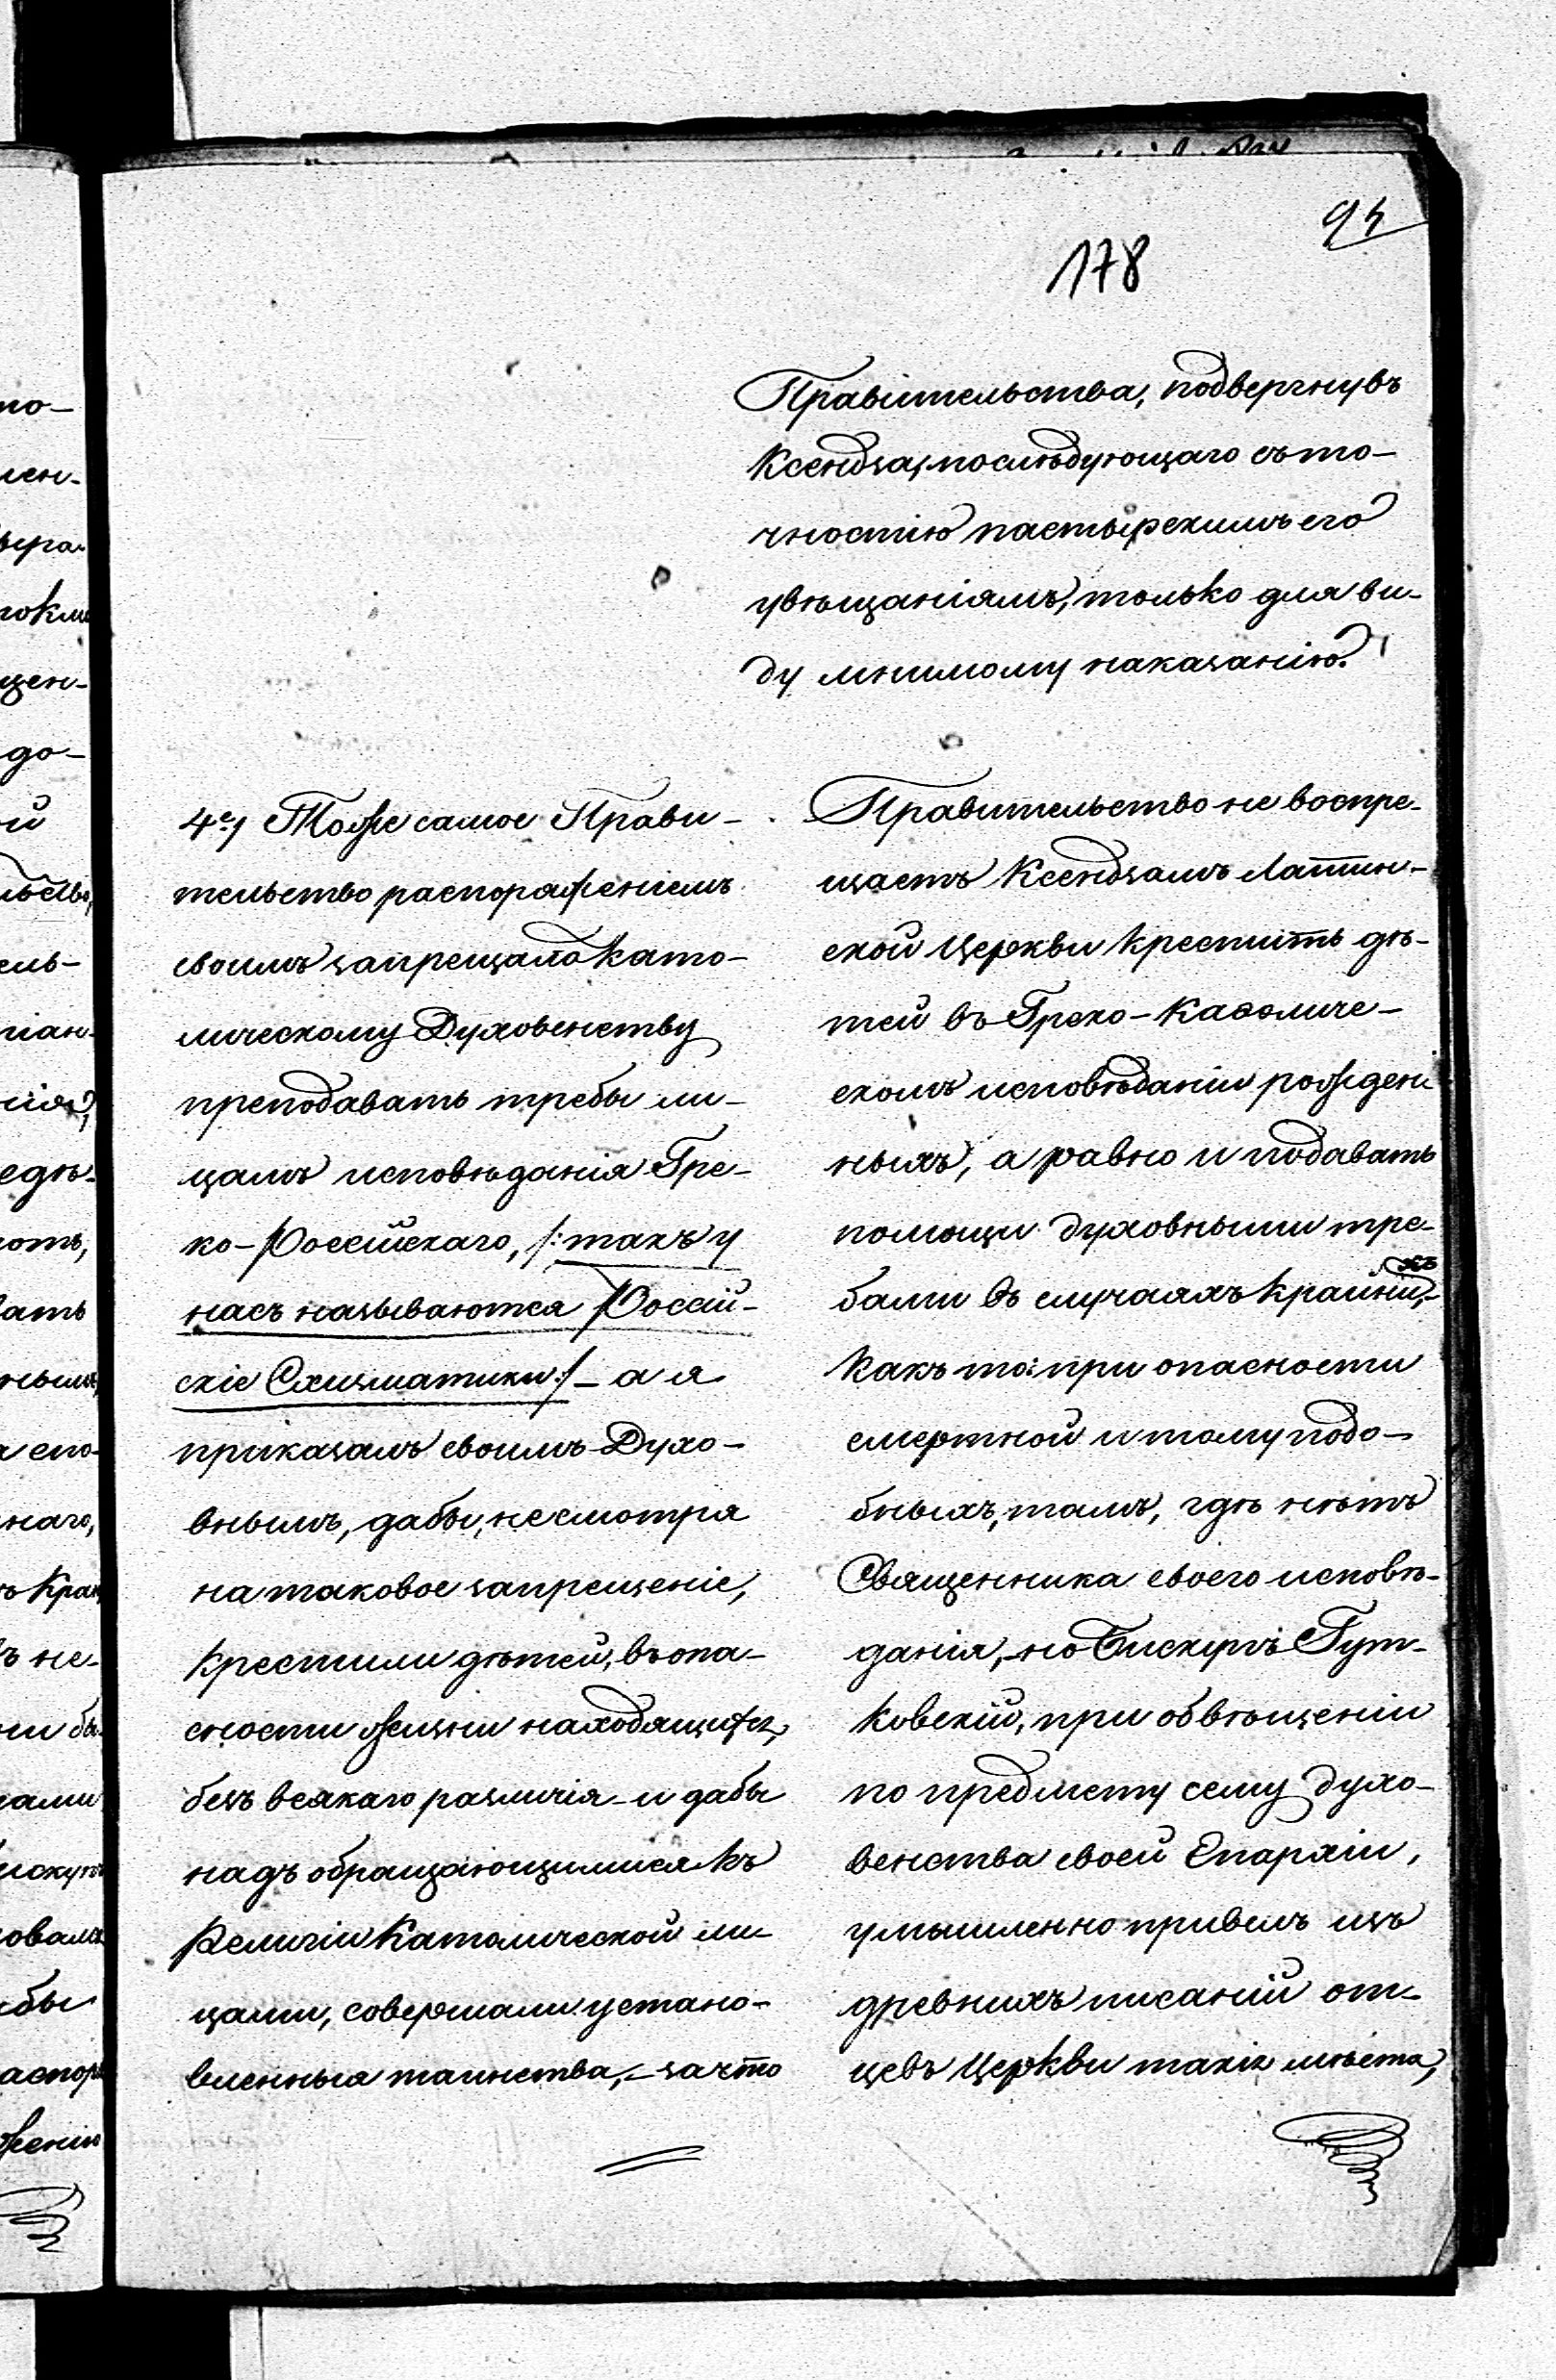 94
178
Правительства, подвергнувъ
Ксендза, послѣдующаго съ то-
чностію пастырскимъ его
увѣщаніямъ, только для ви-
ду мнимому наказанію.
4е, Тоже самое Прави-
тельство распоряженіемъ
своимъ запрещало Като-
лическому Духовенству
преподавать требы ли-
цамъ исповѣданія Гре-
ко-Россійскаго, /:такъ у
насъ называются Россій-
скіе Схизматики:/ - а я
приказалъ своимъ Духо-
внымъ, дабы, несмотря
на таковое запрещеніе,
крестили дѣтей, въ опа-
сности жизни находящихся,
безъ всякаго различія - и дабы
надъ обращающимися къ
Религіи Католической ли-
цами, совершали устано-
вленныя таинства, - за что
Правительство не воспре-
щаетъ Ксендзамъ Латин-
ской Церкви крестить дѣ-
тей въ Греко-Каѳоличе-
скомъ исповѣданіи рожден-
ныхъ, а равно и подавать
помощи духовными тре-
бами въ случаяхъ крайнихъ,-
какъ то: при опасности
смертной и тому подо-
бныхъ, тамъ, гдѣ нѣтъ
Священника своего исповѣ-
данія, - но Бискупъ Гут-
ковскій, при обвѣщеніи
по предмету сему духо-
венства своей Епархіи,
умышленно привелъ изъ
древнихъ писаній от-
цевъ Церкви такія мѣста,